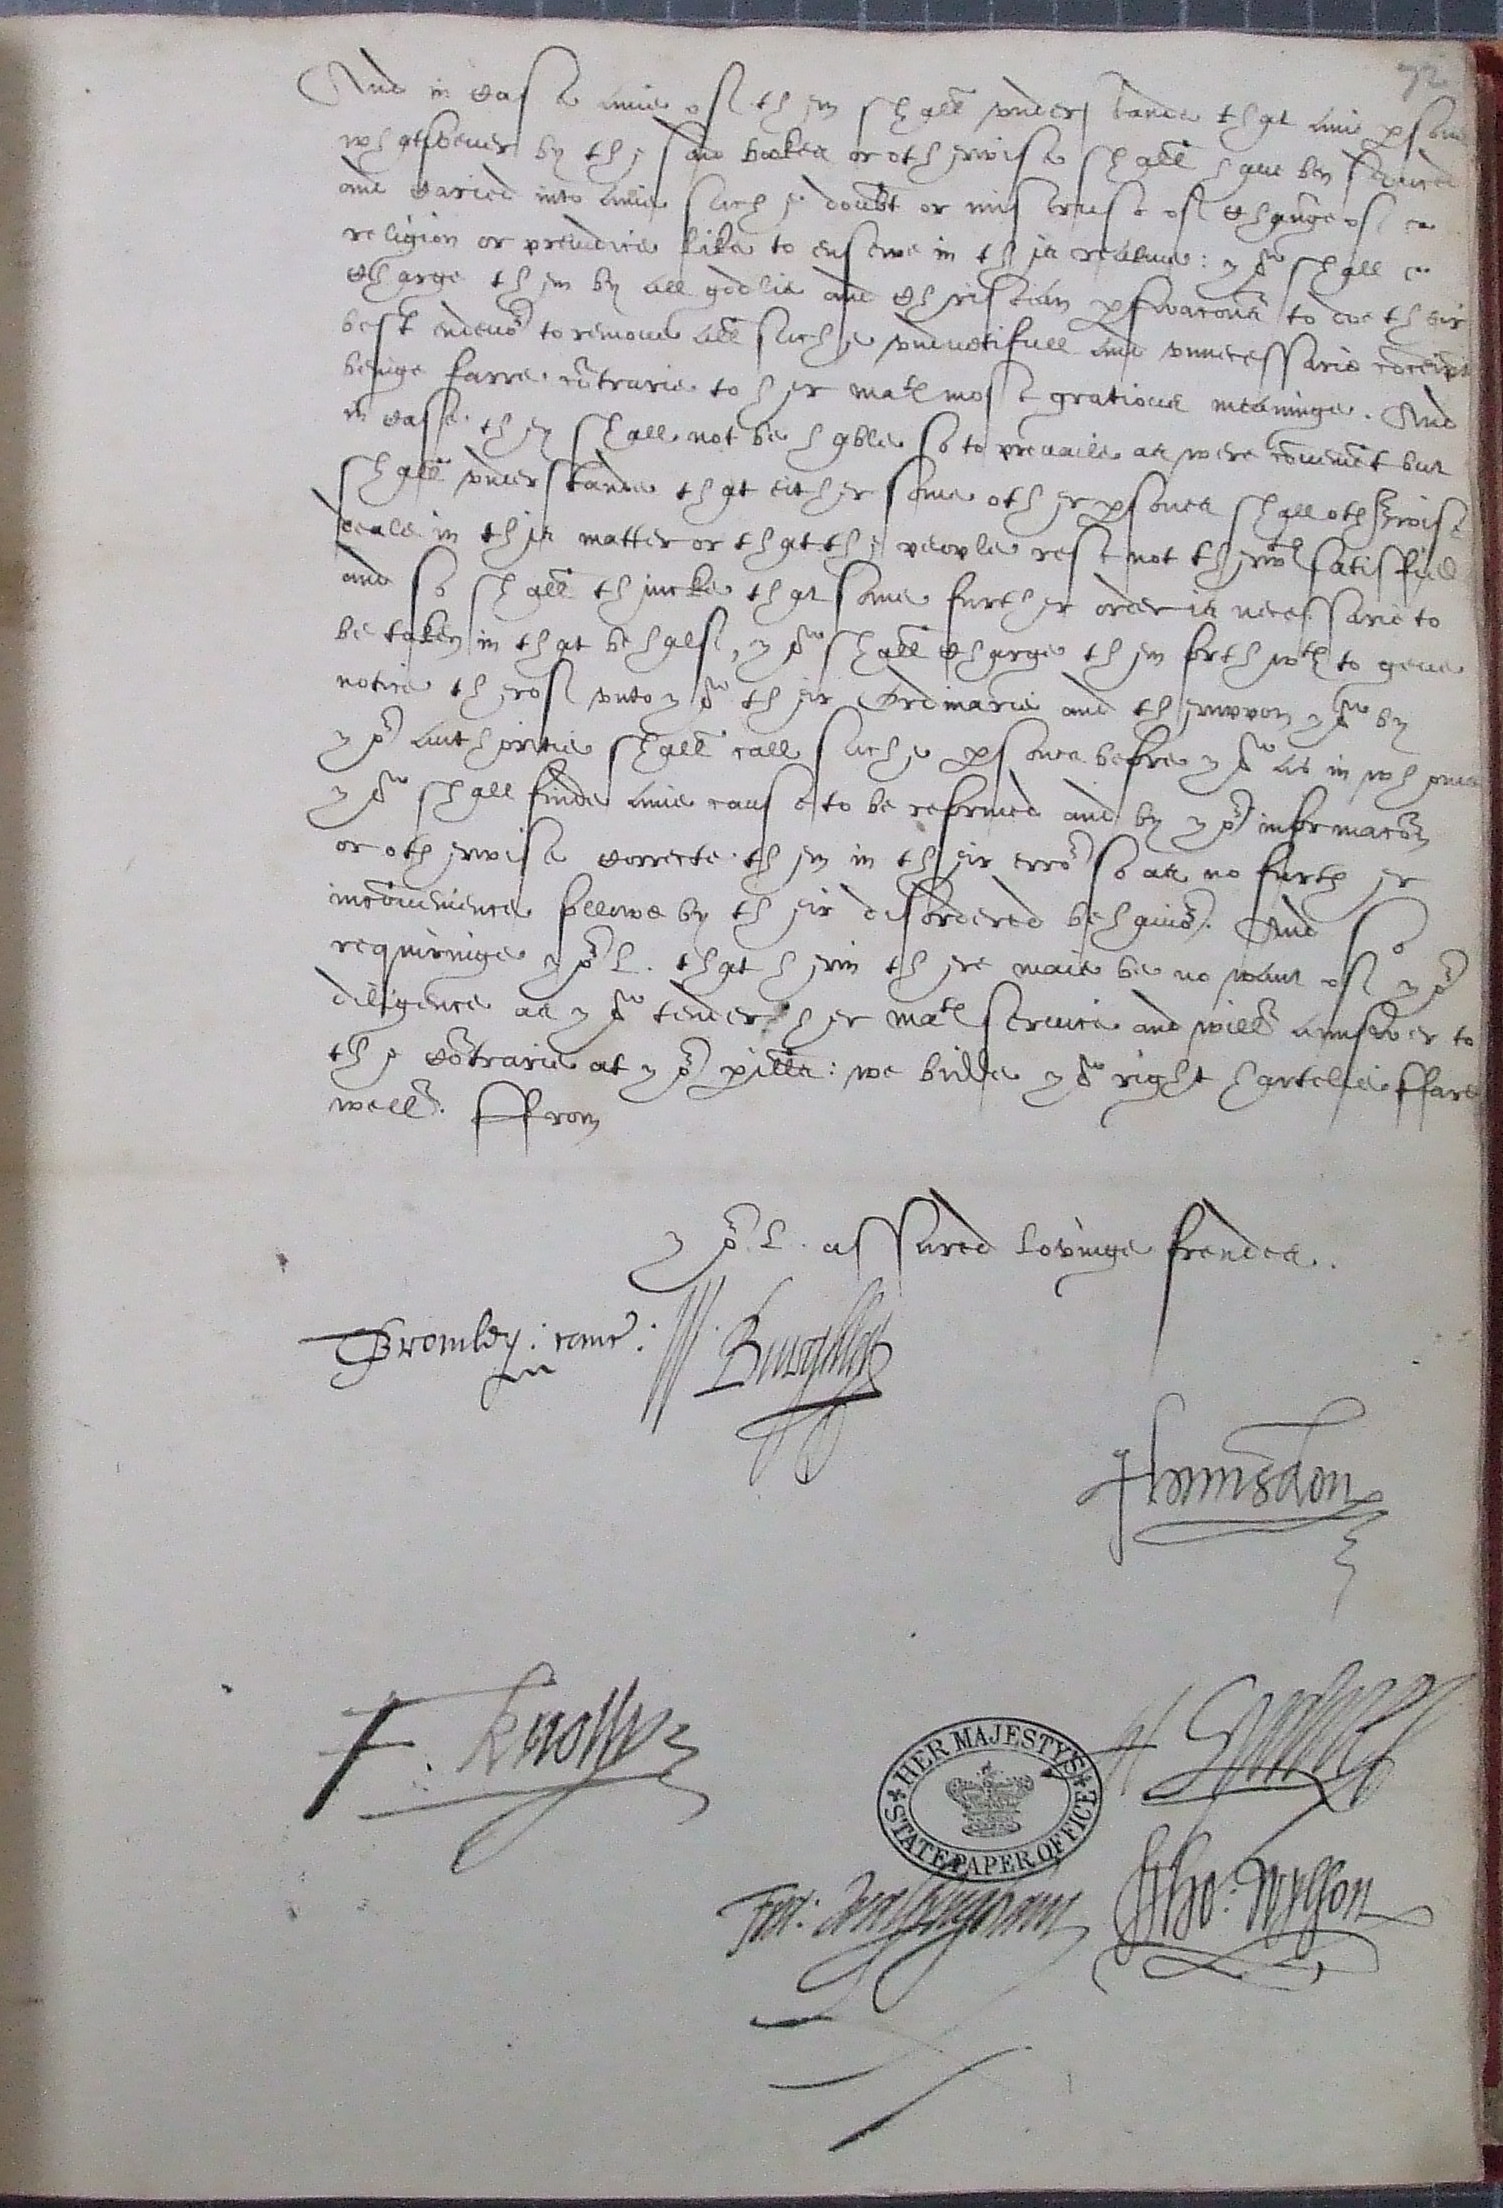 72
And in case anie of them shall understande that anie psone
whatsoever by the said bookes or otherwise shall have ben
and caried into anie suche doubt or mistruste of change of
religion or preiudice like to ensewe in this realme: yow shall
charge them by all godlie and christian pswacons to doe their
best endevor to remove all suche undutifull and unnecessarie conceipts
beinge farre contrarie to her matis most gratious meaninge. And
in case they shall not be hable so to prevaile as were convenient but
shall understande that either some other psones shall otherwise
deale in this matter or that the people rest not therwth satisfied
and so shall thincke that some further order is necessarie to
be taken in that behalf, yow shall charge them forthwth to geve
notice therof unto yow their Ordinarie and theruppon yow by
yor authoritie shall call suche psones before yow as in whome
yow shall finde anie cause to be reformed and by yor informacon
or otherwise correcte them in their error so as no further
inconvenience followe by their disordered behavior. And so
requiringe yor L. that herin there maie be no want of yor
diligence as yow tender her matis service and will aunswer to
the contrarie at yor pills: we bidde yow right hartelie ffare
well. ffrom
yor L. assured lovinge frendes.
TBromley: canc: W. Burghley
Hunsdon
F. Knollys
HER MAJESTY'S
STATE PAPER OFFICE
H Sydney
Fra: Walsyngham Tho: Wylson